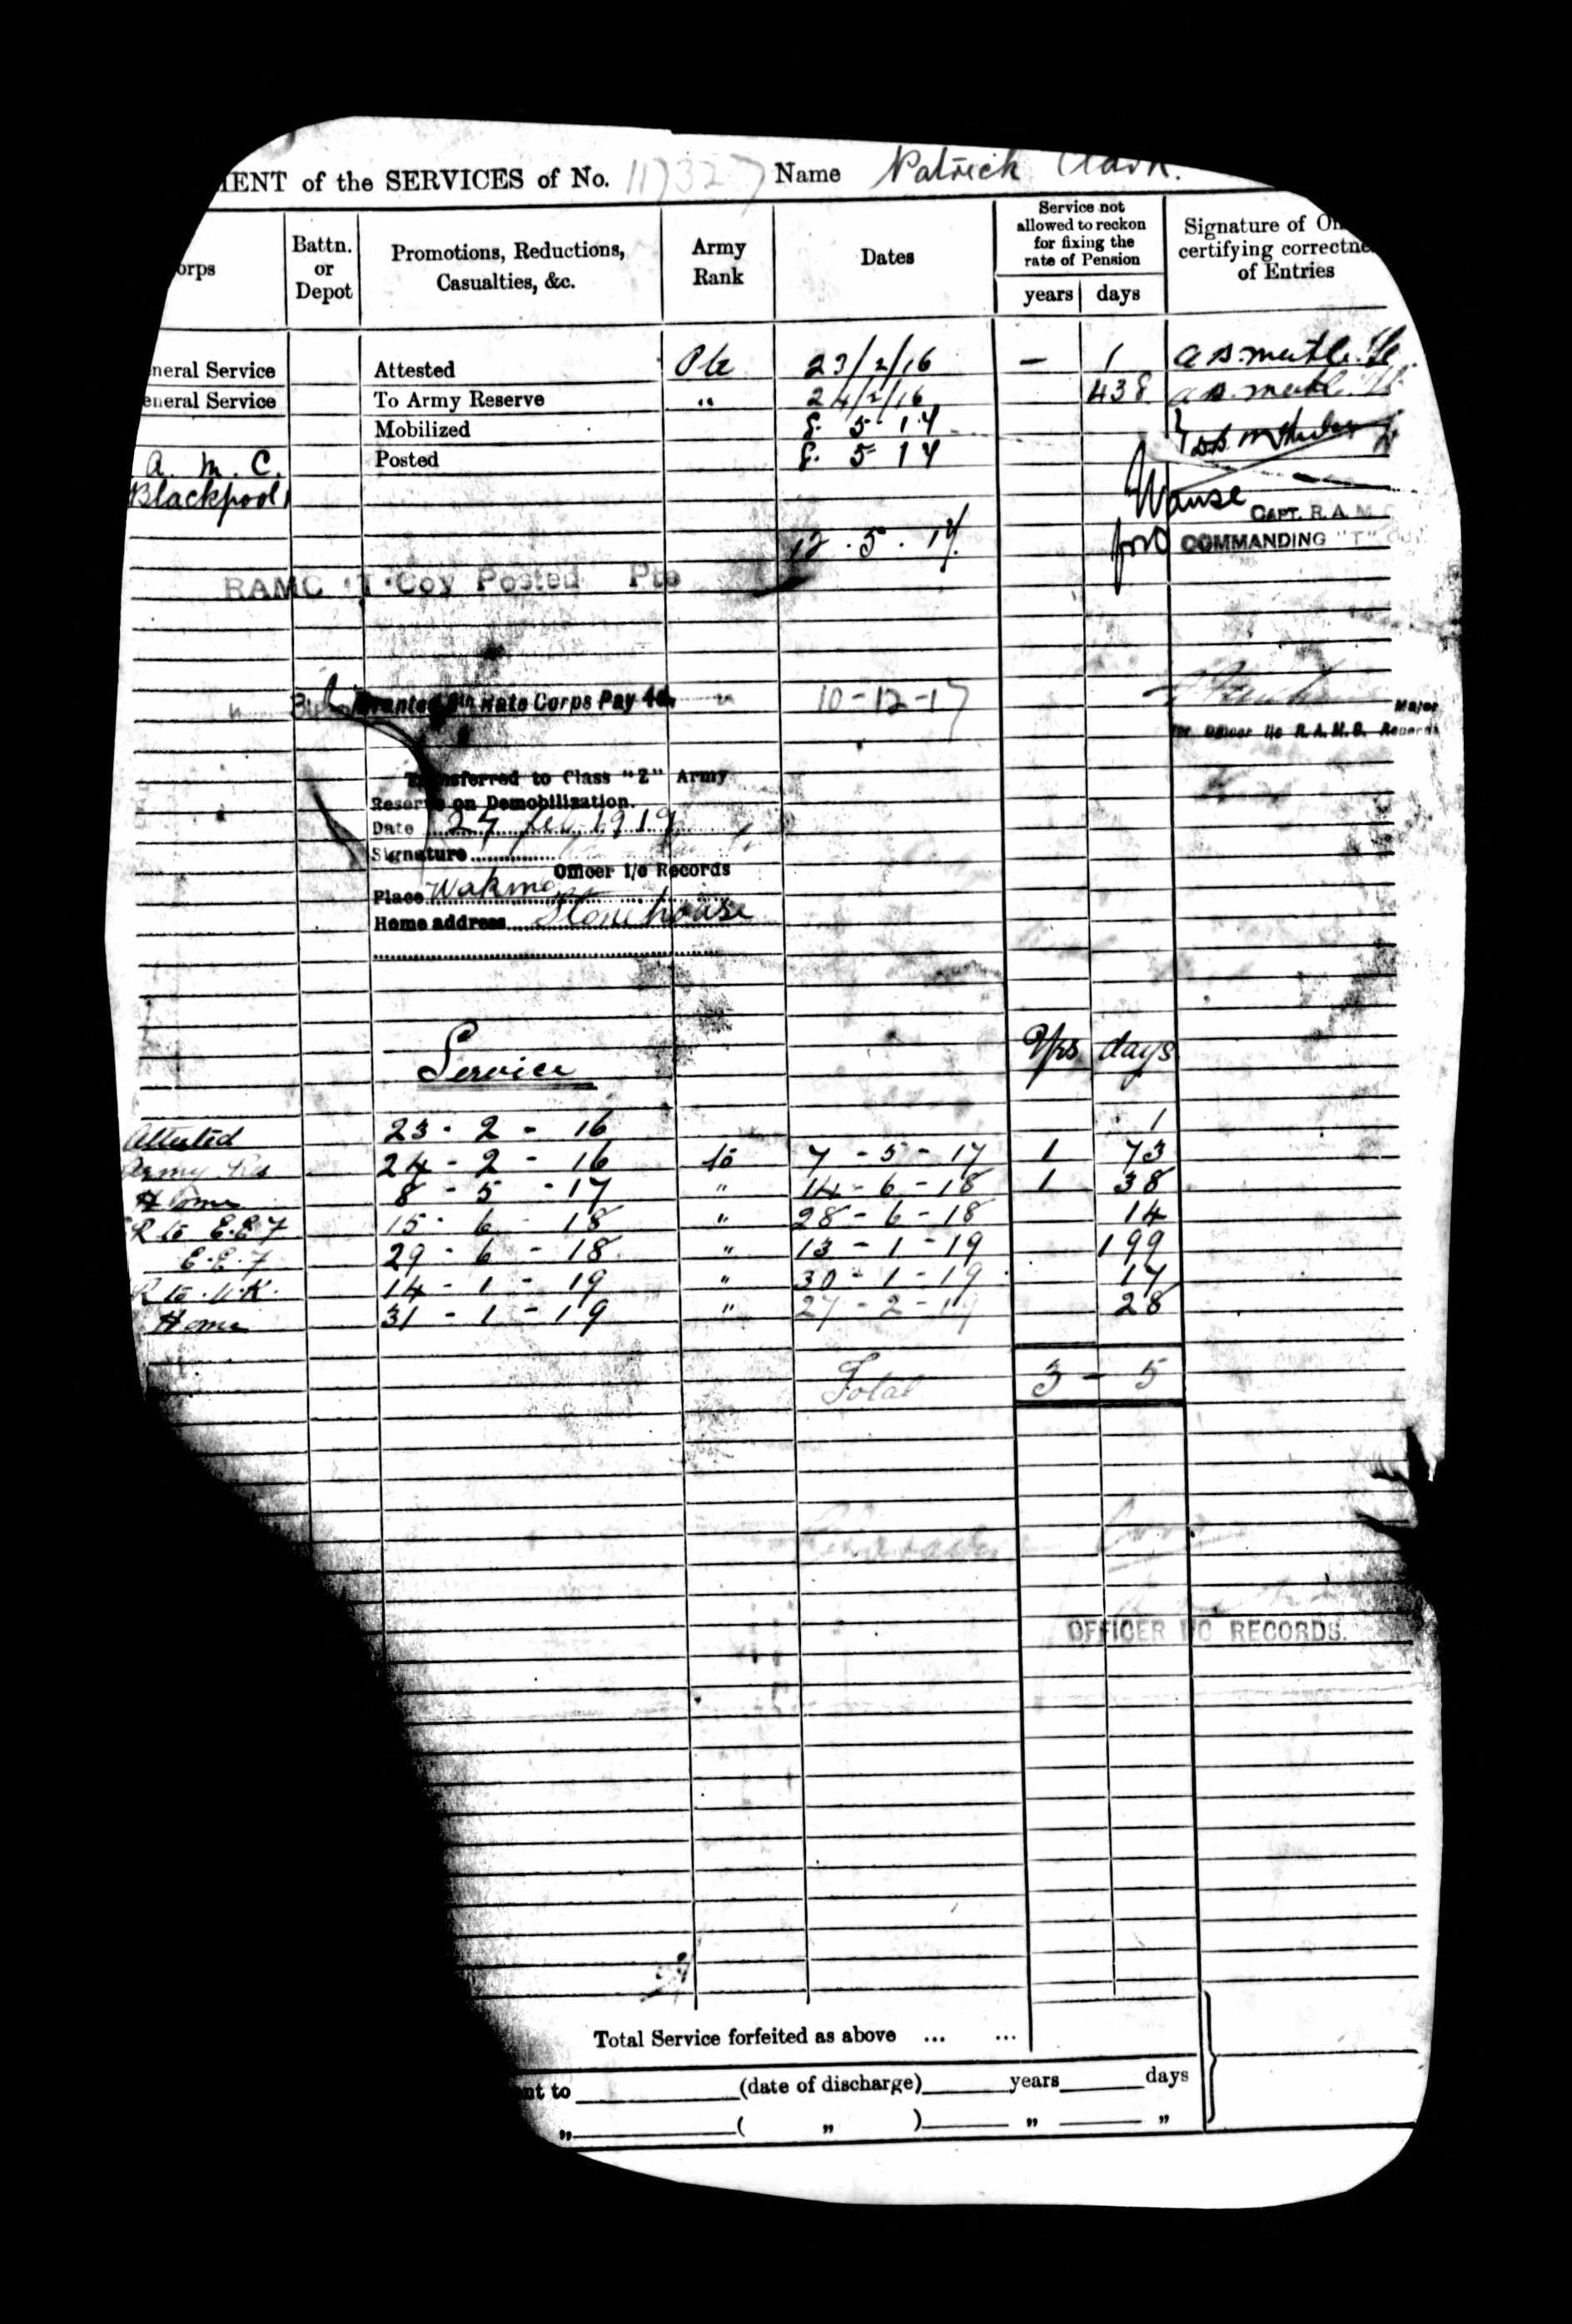 MENT of the SERVICES of No. 117327 Name Patrick Clark.
orps
Battn. or Depot
Promotions, Reductions, Casualties, &c.
Army Rank
Dates
Service not allowed to reckon for fixing the rate of Pension
years days
Signature of O
certifying correctne
of Entries
neral Service Attested Pte 23/2/16 – 1
eneral Service To Army Reserve " 24/2/16 438
Mobilized 8. 5. 17
A. M. C. Posted 8. 5 17
Blackpool
CAPT. R. A. M.
12 . 5 . 17. for O COMMANDING "T" COY.
RAMC "T" Coy Posted Pte
Granted 5th Rate Corps Pay 4d. " 10-12-17
Major
for Officer i/c R.A.M.C. Records
Transferred to Class "Z" Army
Reserve on Demobilization.
Date 27 Feb 1919
Signature
Officer i/c Records
Place Woking
Home address Stonehouse
Service Yrs days
Attested 23 - 2 - 16 1
Army Res 24 - 2 - 16 to 7 - 5 - 17 1 73
Home 8 - 5 - 17 " 14 - 6 - 18 1 38
R to E.E.F 15 - 6 - 18 " 28 - 6 - 18 14
E.E.F 29 - 6 - 18 " 13 - 1 - 19 199
R to U.K. 14 - 1 - 19 " 30 - 1 - 19 17
Home 31 - 1 - 19 " 27 - 2 - 19 28
Total 3 - 5
OFFICER I/C RECORDS.
Total Service forfeited as above ... ...
nt to (date of discharge) years days
" ( " ) " "